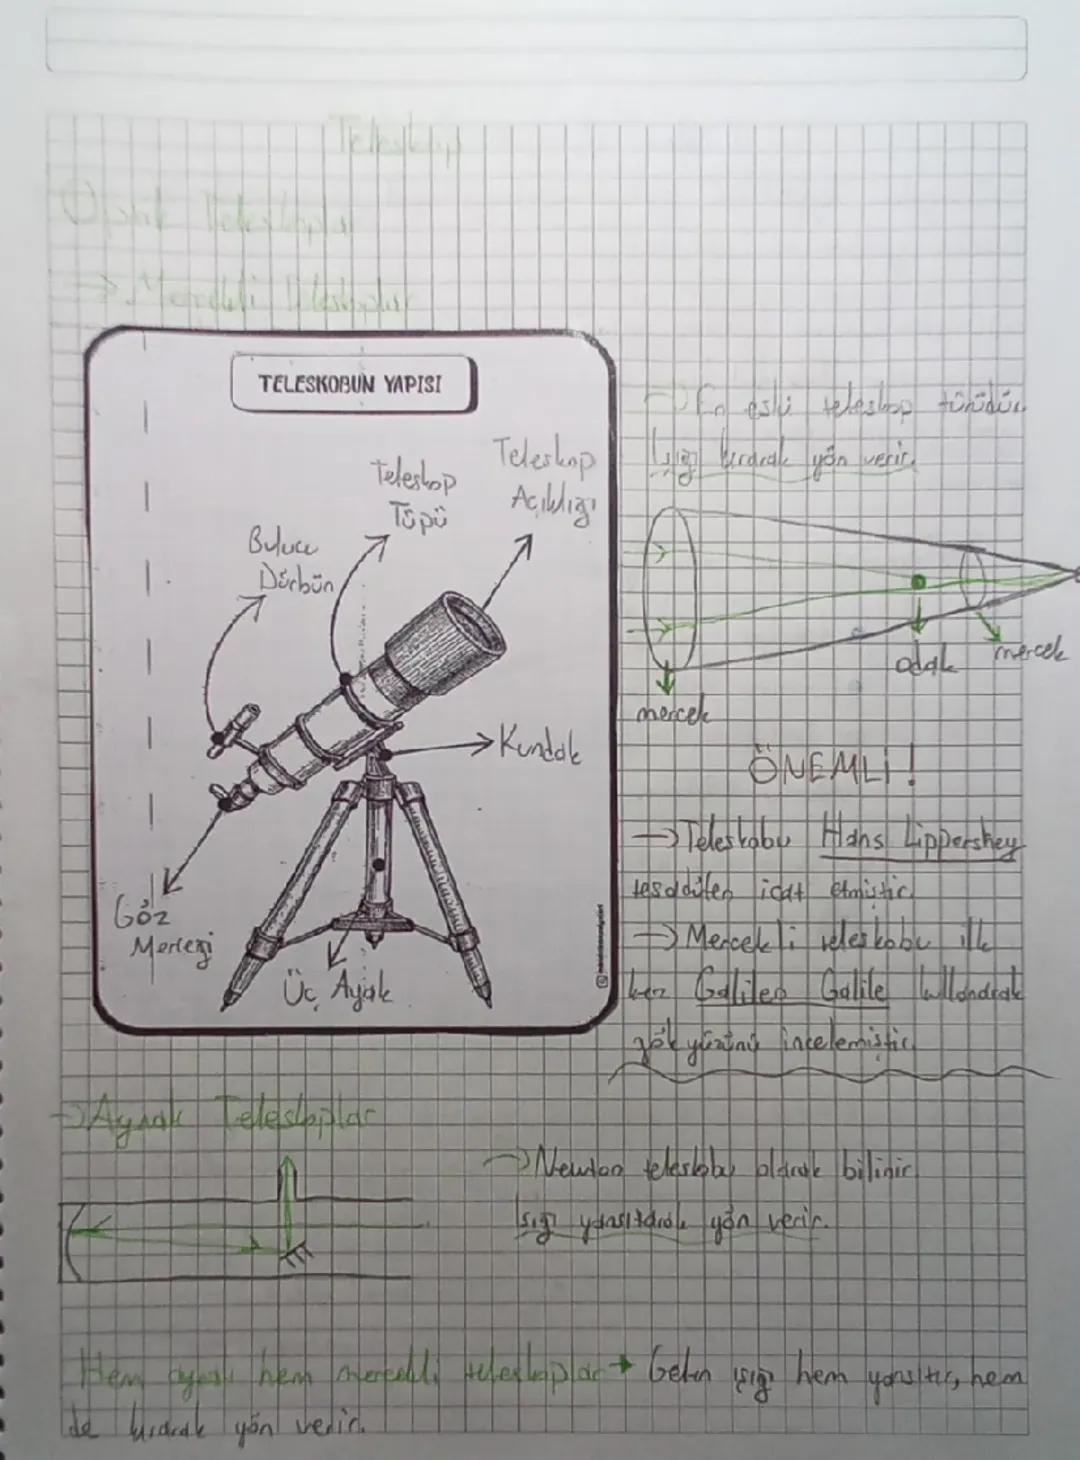 Teleskop
Optik Teleskoplar
→ Mercekli Teleskoplar
TELESKOBUN YAPISI
Teleskop
Açıklığı
Teleskop
Tüpü
Bulucu
Dürbün
Kundak
Göz
Merceği
Üç Ayak
→ En eski teleskop türüdür.
Işığı kırarak yön verir.
odak
mercek
mercek
ÖNEMLİ!
→ Teleskobu Hans Lippershey
tesadüfen icat etmiştir.
→ Mercekli teleskobu ilk
kez Galileo Galile kullanarak
gök yüzünü incelemiştir.
→ Aynalı Teleskoplar
→ Newton teleskobu olarak bilinir.
Işığı yansıtarak yön verir.
Hem aynalı hem mercekli teleskoplar → Gelen ışığı hem yansıtır, hem
de kırarak yön verir.